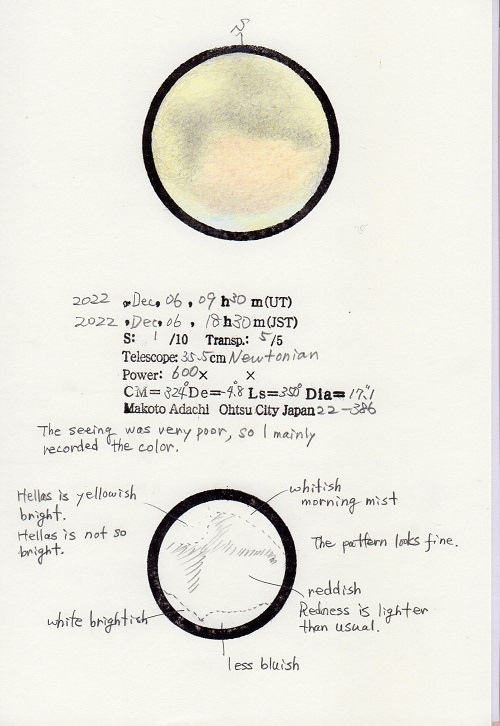 S
2022 Dec. 06, 09 h30 m(UT)
2022 Dec. 06, 18h30m(JST)
S: 1 /10 Transp.: 5/5
Telescope: 35.5cm Newtonian
Power: 600× ×
CM=324° De=-4.8° Ls=350° Dia=17.1"
Makoto Adachi Ohtsu City Japan 22-386
The seeing was very poor, so I mainly
recorded the color.
Hellas is yellowish
bright.
Hellas is not so
bright.
whitish
morning mist
The pattern looks fine.
reddish
Redness is lighter
than usual.
white brightish
less bluish